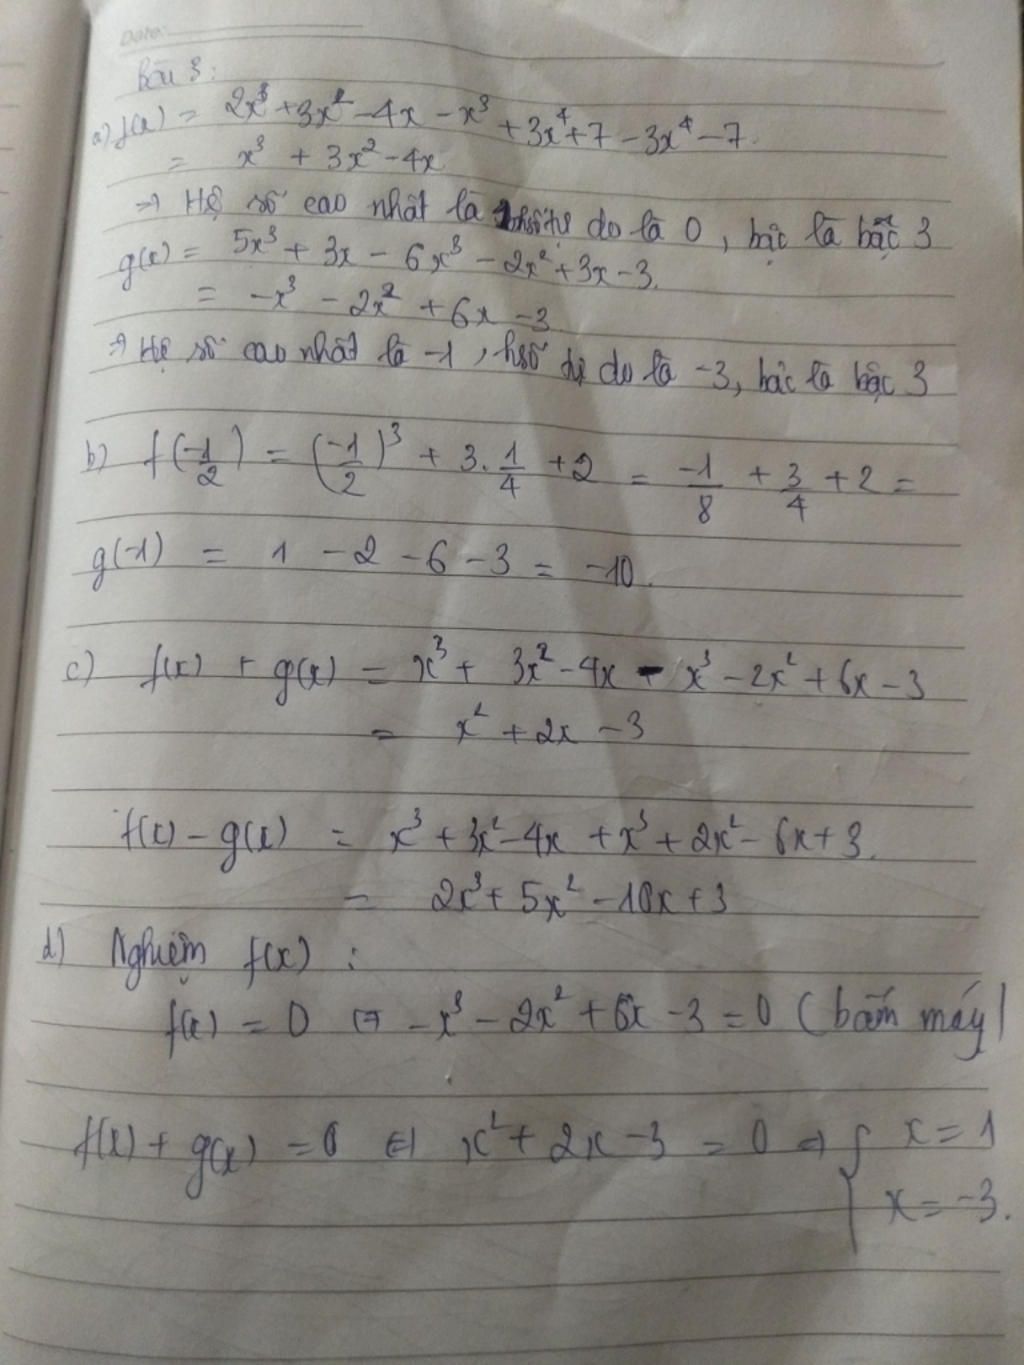 Date:
Bài 3:
a) f(x) = 2x³ + 3x² - 4x - x³ + 3x⁴ + 7 - 3x⁴ - 7.
= x³ + 3x² - 4x
→ Hệ số cao nhất là do là 0, bậc là bậc 3
g(x) = 5x³ + 3x - 6x³ - 2x² + 3x - 3.
= -x³ - 2x² + 6x - 3
→ Hệ số cao nhất là -1, hsố tự do là -3, bậc là bậc 3
b) f(-1/2) = (-1/2)³ + 3.1/4 + 2 = -1/8 + 3/4 + 2 =
g(-1) = 1 - 2 - 6 - 3 = -10.
c) f(x) + g(x) = x³ + 3x² - 4x - x³ - 2x² + 6x - 3
= x² + 2x - 3
f(x) - g(x) = x³ + 3x² - 4x + x³ + 2x² - 6x + 3.
= 2x³ + 5x² - 10x + 3
d) Nghiệm f(x) :
f(x) = 0 ⇔ -x³ - 2x² + 6x - 3 = 0 (bấm máy)
f(x) + g(x) = 0 ⇔ x² + 2x - 3 = 0 ⇒ { x = 1
x = -3.